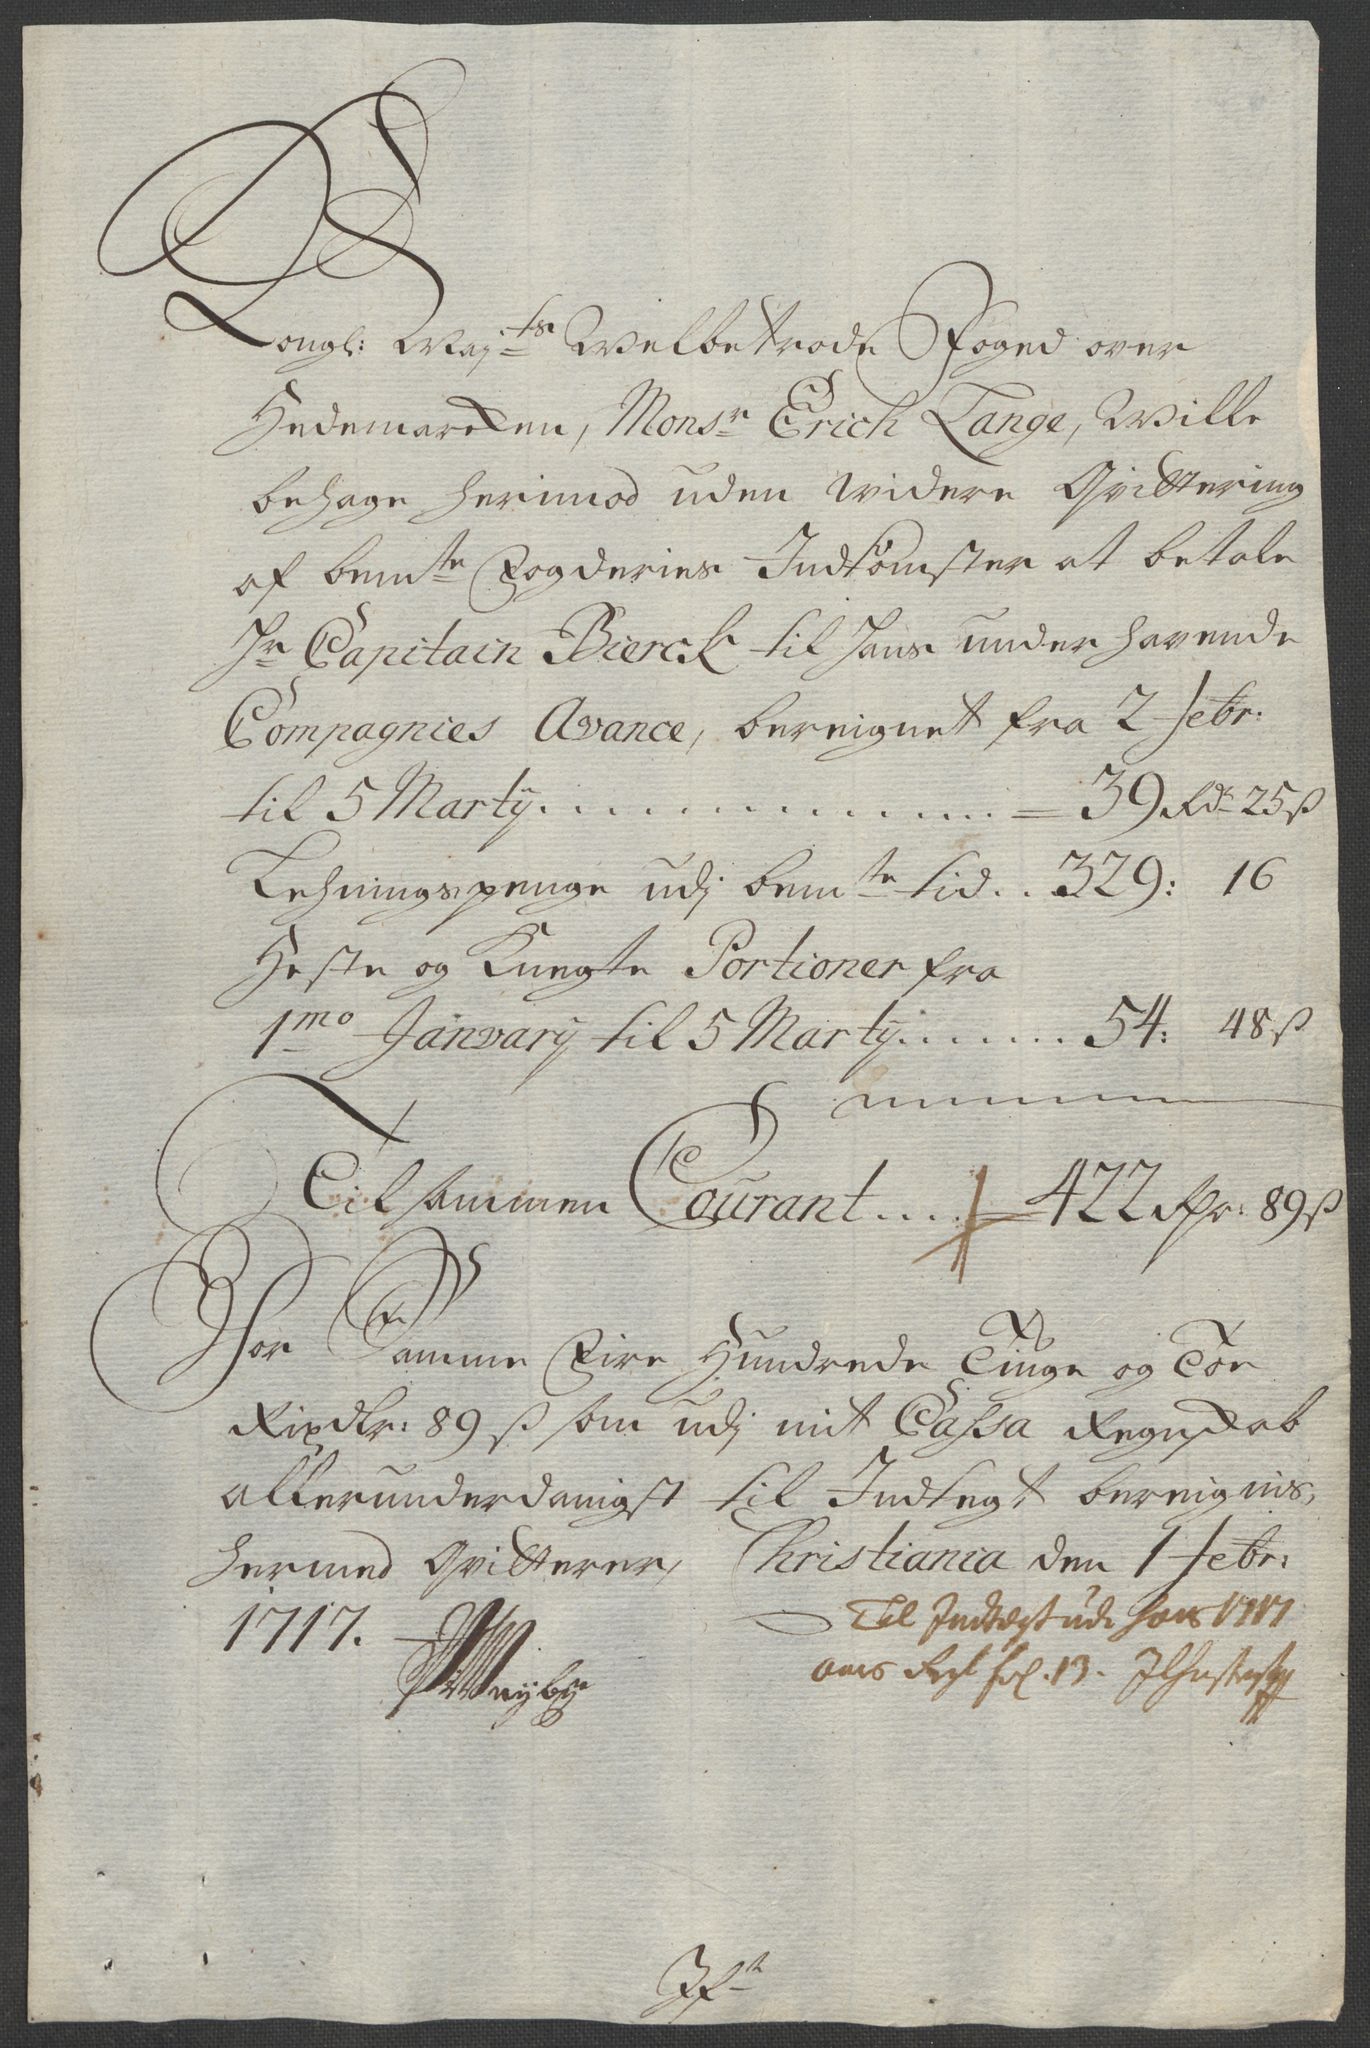 Kongl: Maj:ts Welbetrode Foged over
Hedemarcken, Monsr Erich Lange, Wille
behage herimod uden widere Qvittering
af bemte Fogderies Indkomster at betale
Hr Capitain Bierck til hans underhavende
Compagnies Avance, bereignet fra 2 Febr:
til 5 Martij. . . . . . . . . . . . . . . = 39 Rd 25 ß
Lehningspenge udj bemte tid. . 329: 16
Heste og Knegte Portioner fra
1mo Janvarij til 5 Martij. . . . . . . 54: 48 ß
Tilsammen Courant. . . . = 422 Rdr: 89 ß
For Samme Fire Hundrede Tiuge og Toe
Rixdlr: 89 ß som udj mit Cassa Regnskab
allerunderdanigst til Indtegt bereignis,
hermed Qvitterer, Christiania den 1 Febr:
1717.
Til Indtægt udi hans 1717
aars Regl fol. 13.